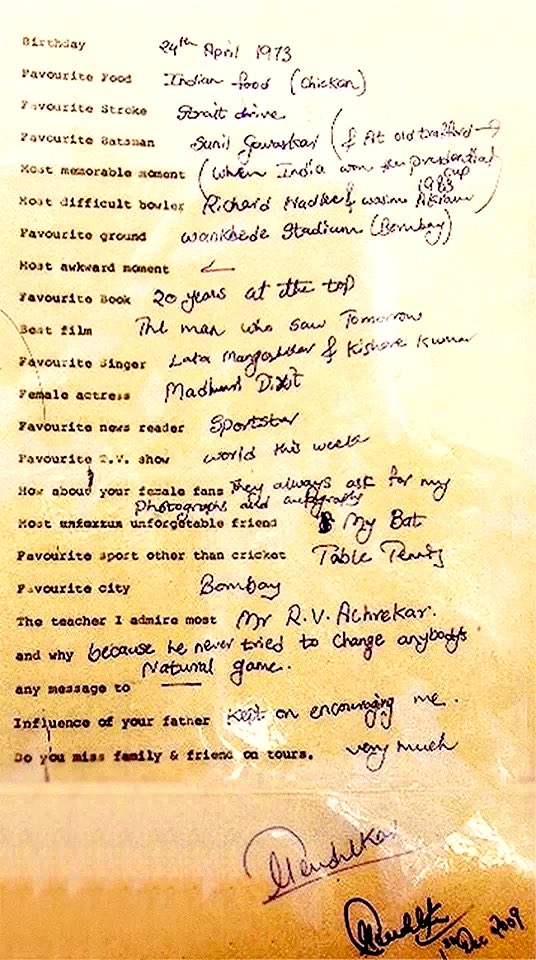 Birthday 24th April 1973
Favourite Food Indian food (Chicken)
Favourite Stroke Strait drive
Favourite Batsman Sunil Gavaskar (& At old trafford →
Most memorable moment (when India won the prudential cup 1983
Most difficult bowler Richard Hadlee & wasim Akram)
Favourite ground wankhede Stadium (Bombay)
Most awkward moment
Favourite Book 20 years at the top
Best film The man who saw Tomorrow
Favourite Singer Lata Mangeshkar & Kishore Kumar
Female actress Madhuri Dixit
Favourite news reader Sportstar
Favourite T.V. show world this week
How about your female fans They always ask for my
photographs and autographs
Most unforgotable friend My Bat
Favourite sport other than cricket Table Tennis
Favourite city Bombay
The teacher I admire most Mr R.V. Achrekar.
and why because he never tried to change anybody's
Natural game.
any message to —
Influence of your father Kept on encouraging me.
Do you miss family & friend on tours. very much
Dec 2009